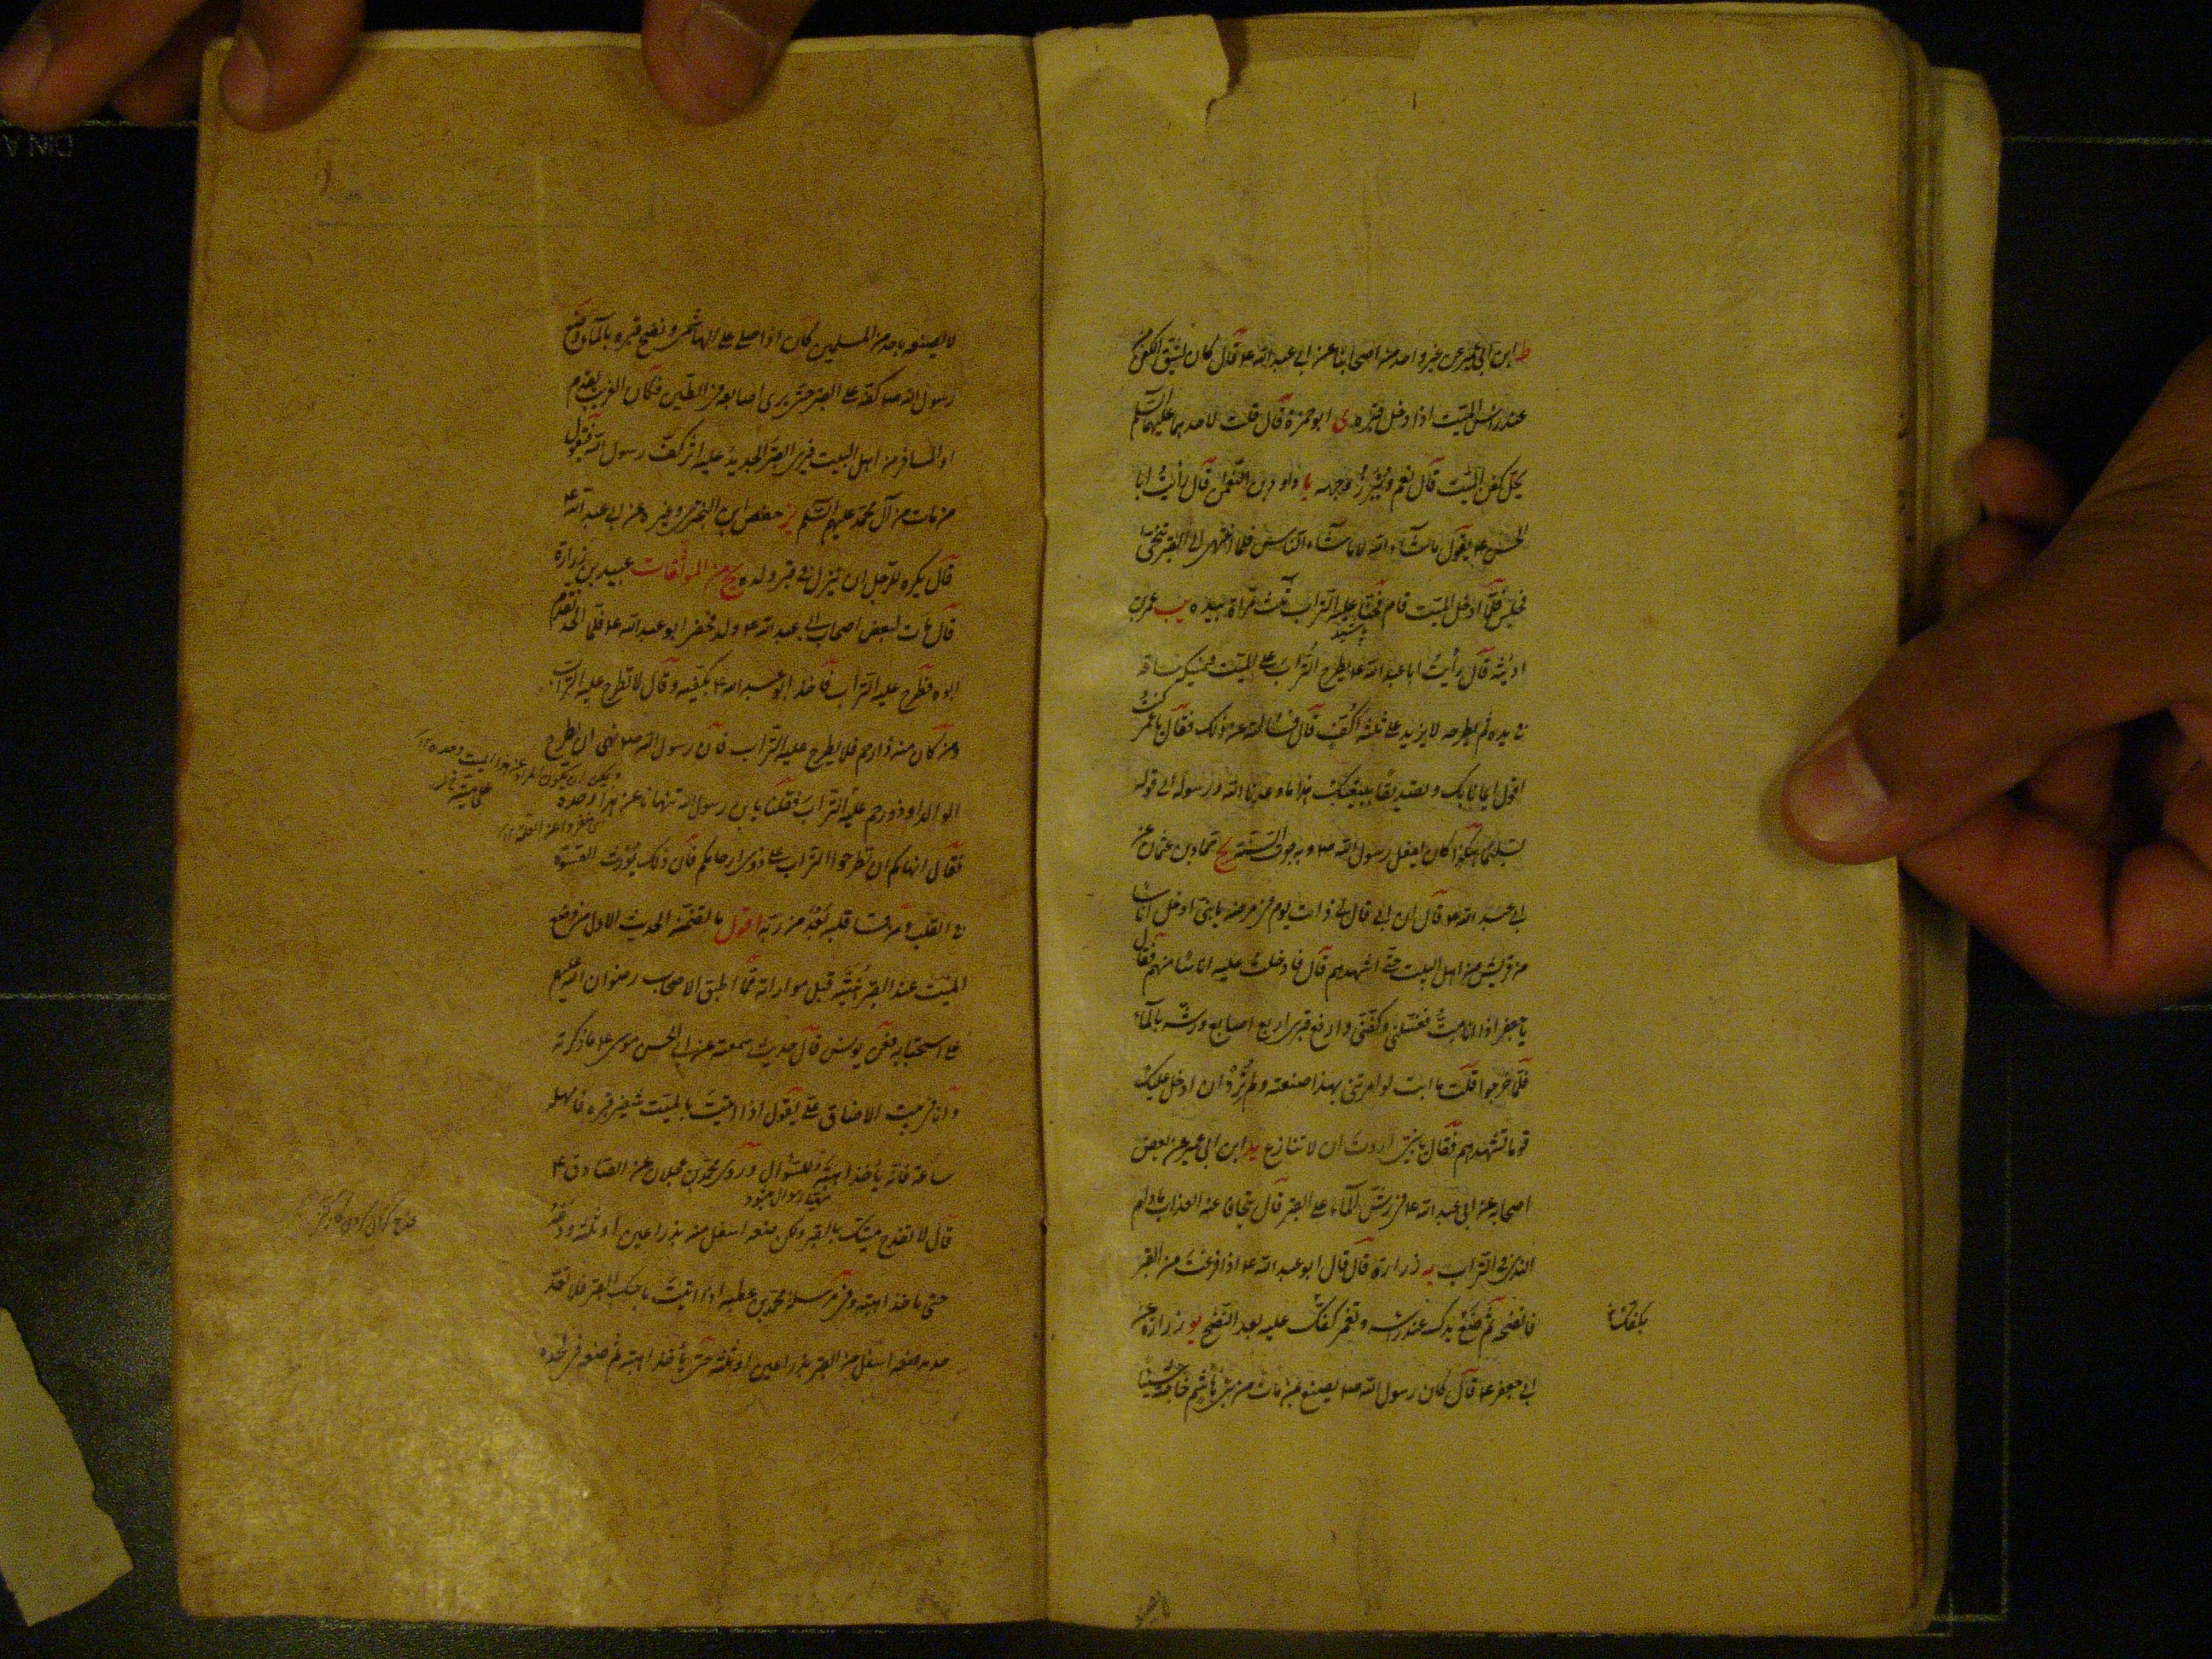 ط ابن ابي عمير عن غير واحد من اصحابنا عن ابي عبد الله ع قال كان يشق الكفن من
عند رأس الميت اذا دخل قبره ى ابو حمزة قال قلت لاحدهما عليهما السلم
يحل كفن الميت قال نعم ويبرز وجهه يا داود بن النعمان قال رأيت ابا
الحسن ع يقول ما شاء الله لا ما شاء الناس فلما انتهى الى القبر تنحى
فجلس فلما ادخل الميت قام فحثا عليه التراب ثلث مرات بيده يب عمر بن
اذينة قال رأيت ابا عبد الله ع يطرح التراب على الميت فيمسكه ساعة
في يده ثم يطرحه لا يزيد على ثلثة اكف قال فسالته عن ذلك فقال يا عمر كنت
اقول ايمانا بك وتصديقا ببعثك هذا ما وعدنا الله ورسوله الى قوله
تسليما هكذا كان يفعل رسول الله ص وبه جرت السنة يج حماد بن عثمان عن
ابي عبد الله ع قال ان ابي قال لي ذات يوم في مرضه يا بني ادخل اناسا
من قريش من اهل البيت حتى اشهدهم قال فادخلت عليه اناسا منهم فقال
يا جعفر اذا انا مت فغسلني وكفني وارفع قبري اربع اصابع ورشه بالماء
فلما خرجوا قلت يا ابت لو امرتني بهذا صنعته ولم ترد ان ادخل عليك
قوما تشهدهم فقال يا بني اردت ان لا تنازع يد ابن ابي عمير عن بعض
اصحابه عن ابي عبد الله ع في رش الماء على القبر قال يتجافى عنه العذاب ما دام
الندى في التراب يه زرارة قال قال ابو عبد الله ع اذا فرغت من القبر
فانضحه ثم ضع يدك عند رأسه وتغمز كفك عليه بعد النضح يو زرارة عن
بكفك
ابي جعفر ع قال كان رسول الله ص يصنع بمن مات من بني هاشم خاصة شيئا
لا يصنعه باحد من المسلمين كان اذا صلى على الهاشمي ونضح قبره بالماء وضع
رسول الله ص كفه على القبر حتى يرى اصابعه في الطين فكان الغريب يقدم
او المسافر من اهل البيت فيرى القبر الجديد عليه اثر كف رسول الله فيقول
من مات من آل محمد عليهم السلم يز حفص ابن البختري وغيره عن ابي عبد الله ع
قال يكره للرجل ان ينزل في قبر ولده يح من الموثقات عبيد بن زرارة
قال مات لبعض اصحاب ابي عبد الله ع ولد فحضر ابو عبد الله ع فلما الحد تقدم
ابوه فطرح عليه التراب فاخذ ابو عبد الله ع بكفيه وقال لا تطرح عليه التراب
ومن كان منه ذا رحم فلا يطرح عليه التراب فان رسول الله ص نهى ان يطرح
الوالد او ذو رحم على التراب فقلنا يا بن رسول الله تنهانا عن هذا وحده
فقال انهاكم ان تطرحوا التراب على ذوي ارحامكم فان ذلك يورث القسوة
في القلب ومن قسا قلبه بعد من ربه اقول ما تضمنه الحديث الاول من وضع
الميت عند القبر هنيئة قبل مواراته مما اطبق الاصحاب رضوان الله عليهم
على استحبابه فعن يونس قال حديث سمعته عن ابي الحسن موسى ع ما ذكرته
وانا في بيت الا ضاق علي يقول اذا اتيت بالميت شفير قبره فامهله
ساعة فانه يأخذ اهبته للسؤال وروى محمد بن عجلان عن الصادق ع
قال لا تفدح ميتك بالقبر ولكن ضعه اسفل منه بذراعين او ثلثة ودعه
حتى ياخذ اهبته وفي مرسلة محمد بن عطية اذا اتيت باخيك القبر فلا تفدحه
به ضعه اسفل من القبر بذراعين او ثلثة حتى يأخذ اهبته ثم ضعه في لحده